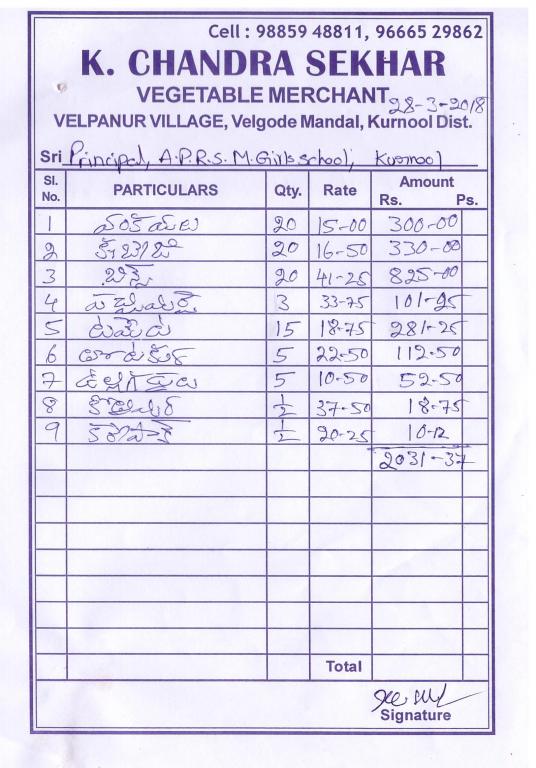 Cell : 98859 48811, 96665 29862
K. CHANDRA SEKHAR
VEGETABLE MERCHANT 28-3-2018
VELPANUR VILLAGE, Velgode Mandal, Kurnool Dist.
Sri Principal, A.P.R.S. M. Girls School, Kurnool
Sl. No. PARTICULARS Qty. Rate Amount Rs. Ps.
1 వంకాయలు 20 15-00 300-00
2 క్యాబేజి 20 16-50 330-00
3 బీన్స్ 20 41-25 825-00
4 పచ్చిమిర్చి 3 33-75 101-25
5 టమోటా 15 18-75 281-25
6 5 22-50 112-50
7 ఉల్లిగడ్డలు 5 10-50 52-50
8 కొత్తిమీర 1/2 37-50 18-75
9 కరేపాకు 1/2 20-25 10-12
2031-37
Total
Signature